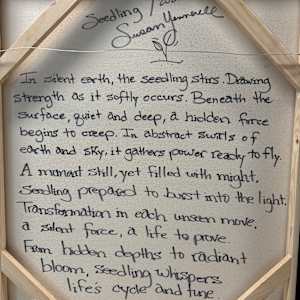 Seedling /
Susan
In silent earth, the seedling stirs. Drawing
strength as it softly occurs. Beneath the
surface, quiet and deep, a hidden force
begins to creep. In abstract swirls of
earth and sky, it gathers power ready to fly.
A moment still, yet filled with might,
Seedling prepared to burst into the light.
Transformation in each unseen move,
a silent force, a life to prove.
From hidden depths to radiant
bloom, seedling whispers
life's cycle and tune